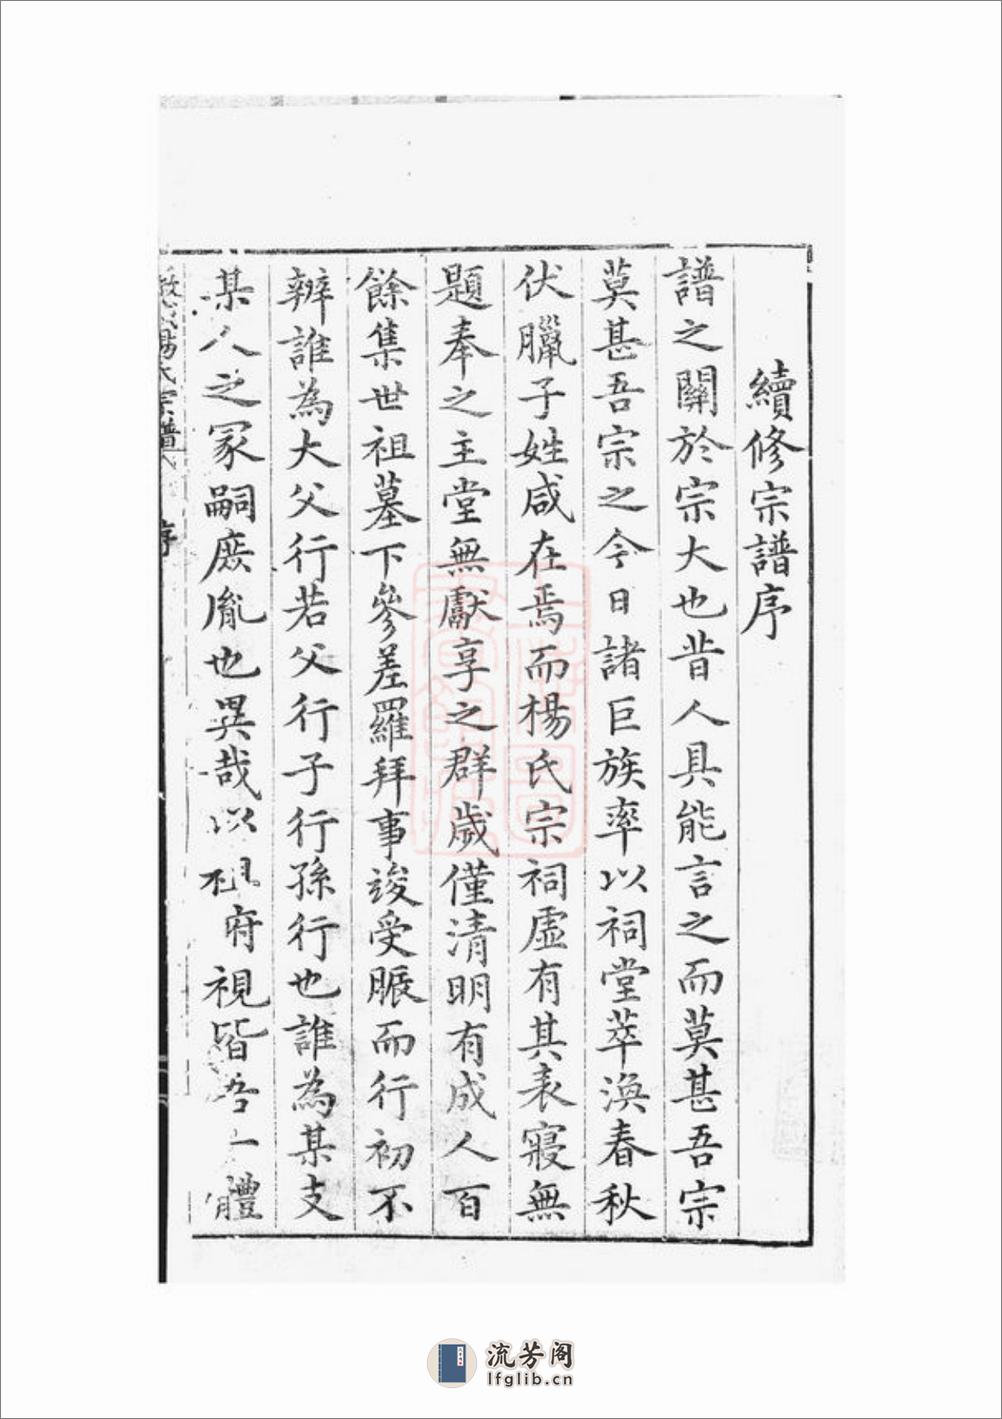 續修宗譜序
譜之關於宗大也昔人具能言之而莫甚吾宗
莫甚吾宗之今日諸巨族率以祠堂萃渙春秋
伏臘子姓咸在焉而楊氏宗祠虛有其表寢無
題奉之主堂無獻享之群歲僅清明有成人百
餘集世祖墓下參差羅拜事竣受脤而行初不
辨誰為大父行若父行子行孫行也誰為某支
某人之冢嗣庶胤也異哉以祖府視皆吾一體
氏宗譜
序
流芳阁
lfglib.cn